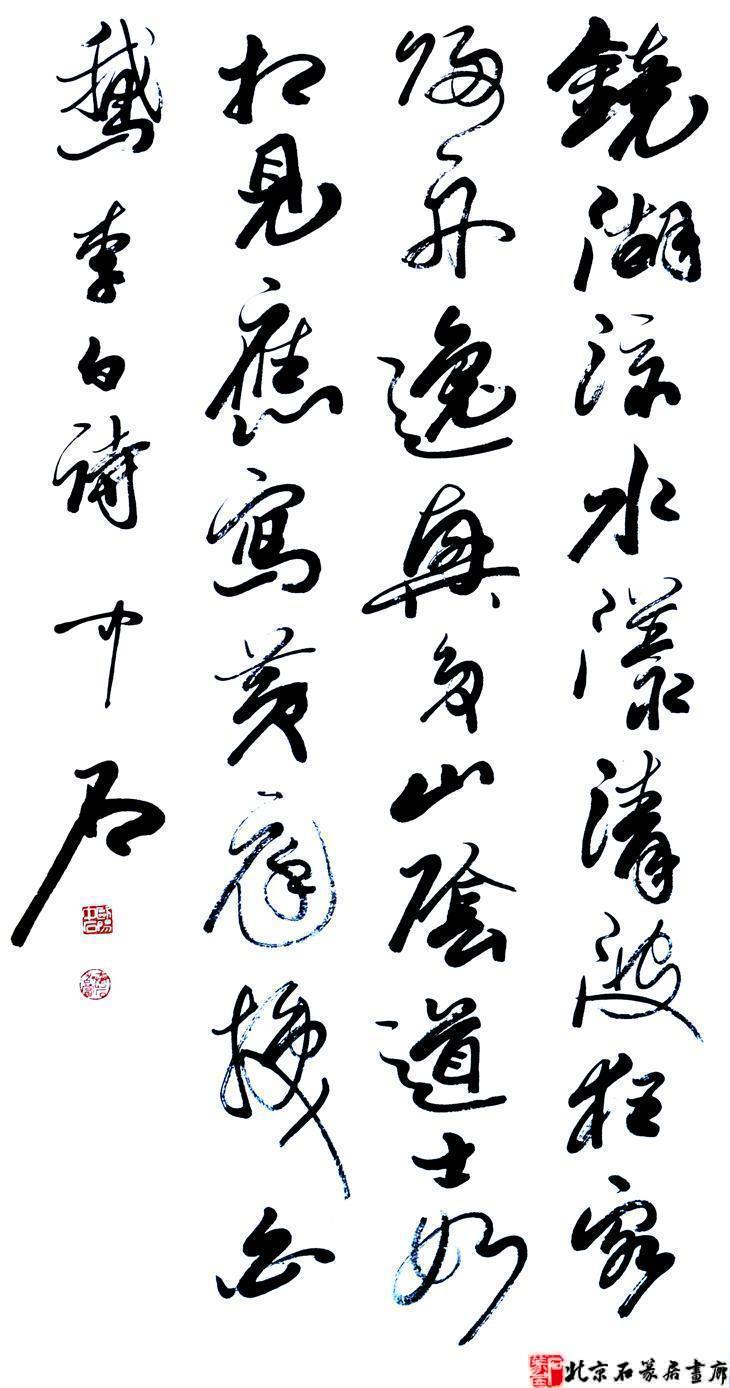 鏡湖流水漾清波狂客
歸舟逸興多山陰道士如
相見應寫黃庭換白
鵝 李白詩 中石
北京石篆居畫廊